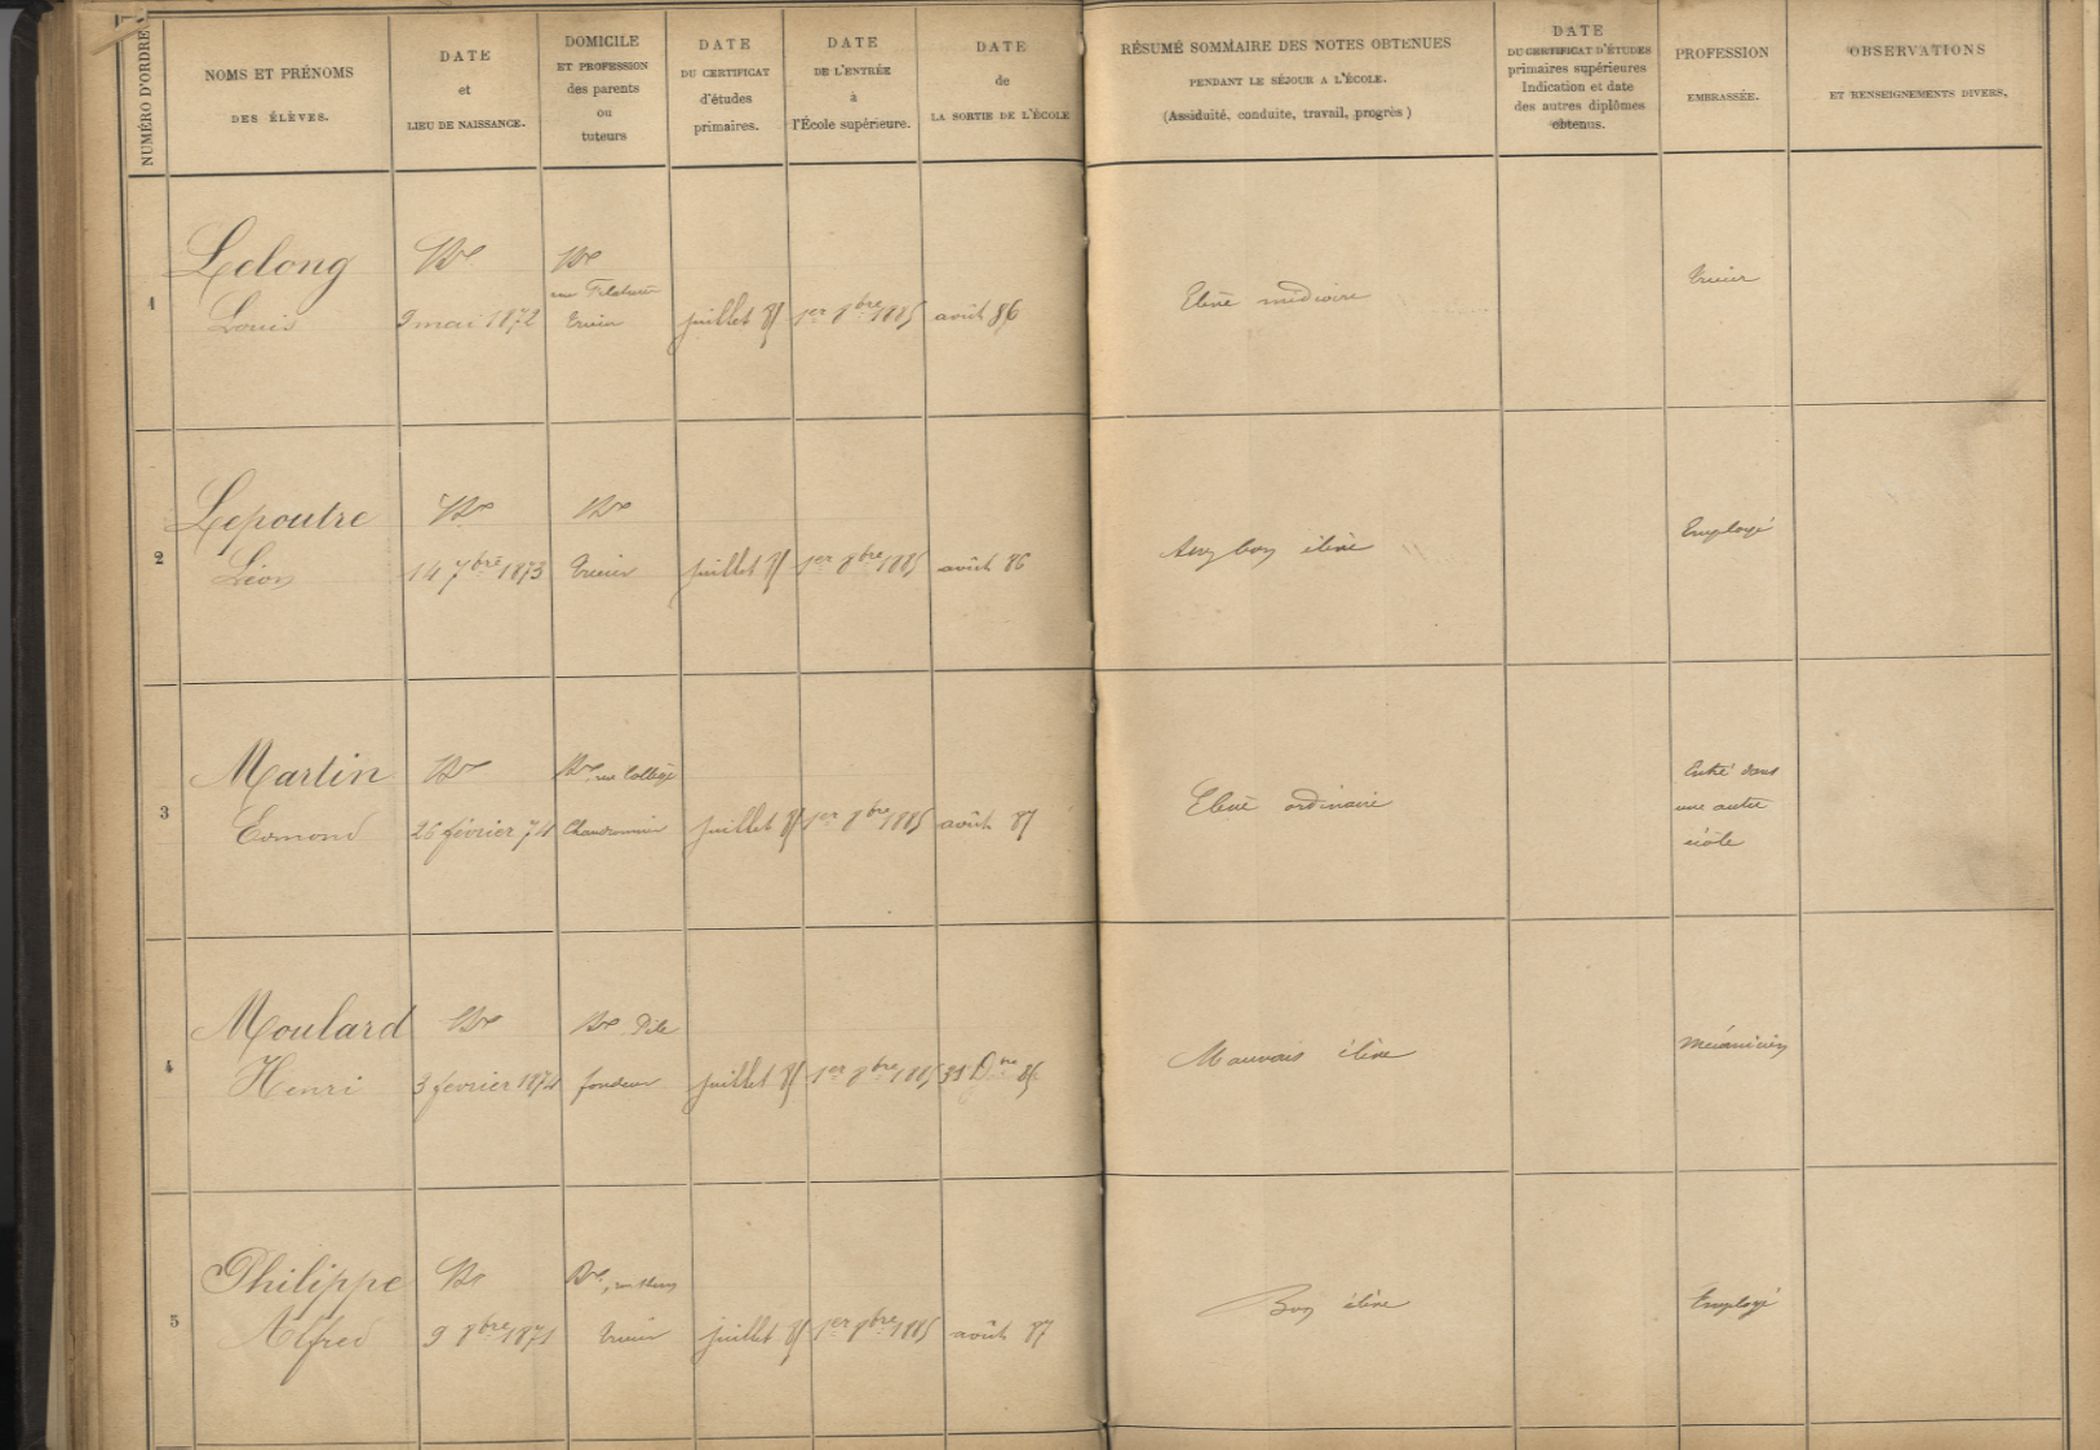 NUMÉRO D'ORDRE
NOMS ET PRÉNOMS
DES ÉLÈVES.
DATE
et
LIEU DE NAISSANCE.
DOMICILE
ET PROFESSION
des parents
ou
tuteurs
DATE
DU CERTIFICAT
d'études
primaires.
DATE
DE L'ENTRÉE
à
l'École supérieure.
DATE
de
LA SORTIE DE L'ÉCOLE
RÉSUMÉ SOMMAIRE DES NOTES OBTENUES
PENDANT LE SÉJOUR A L'ÉCOLE.
(Assiduité, conduite, travail, progrès)
DATE
DU CERTIFICAT D'ÉTUDES
primaires supérieures
Indication et date
des autres diplômes
obtenus.
PROFESSION
EMBRASSÉE.
OBSERVATIONS
ET RENSEIGNEMENTS DIVERS.
1
Lelong
Louis
9 mai 1872
juillet 85
1er 8bre 1885
août 86
Elève médiocre
2
Lepoutre
Léon
14 7bre 1873
juillet 85
1er 8bre 1885
août 86
Assez bon élève
Employé
3
Martin
Edmond
26 février 74
rue Collège
Chaudronnier
juillet 85
1er 8bre 1885
août 87
Elève ordinaire
Entré dans
une autre
école
4
Moulard
Henri
3 février 1874
fondeur
juillet 85
1er 8bre 1885
31 Dbre 85
Mauvais élève
Mécanicien
5
Philippe
Alfred
9 8bre 1871
juillet 85
1er 8bre 1885
août 87
Bon élève
Employé